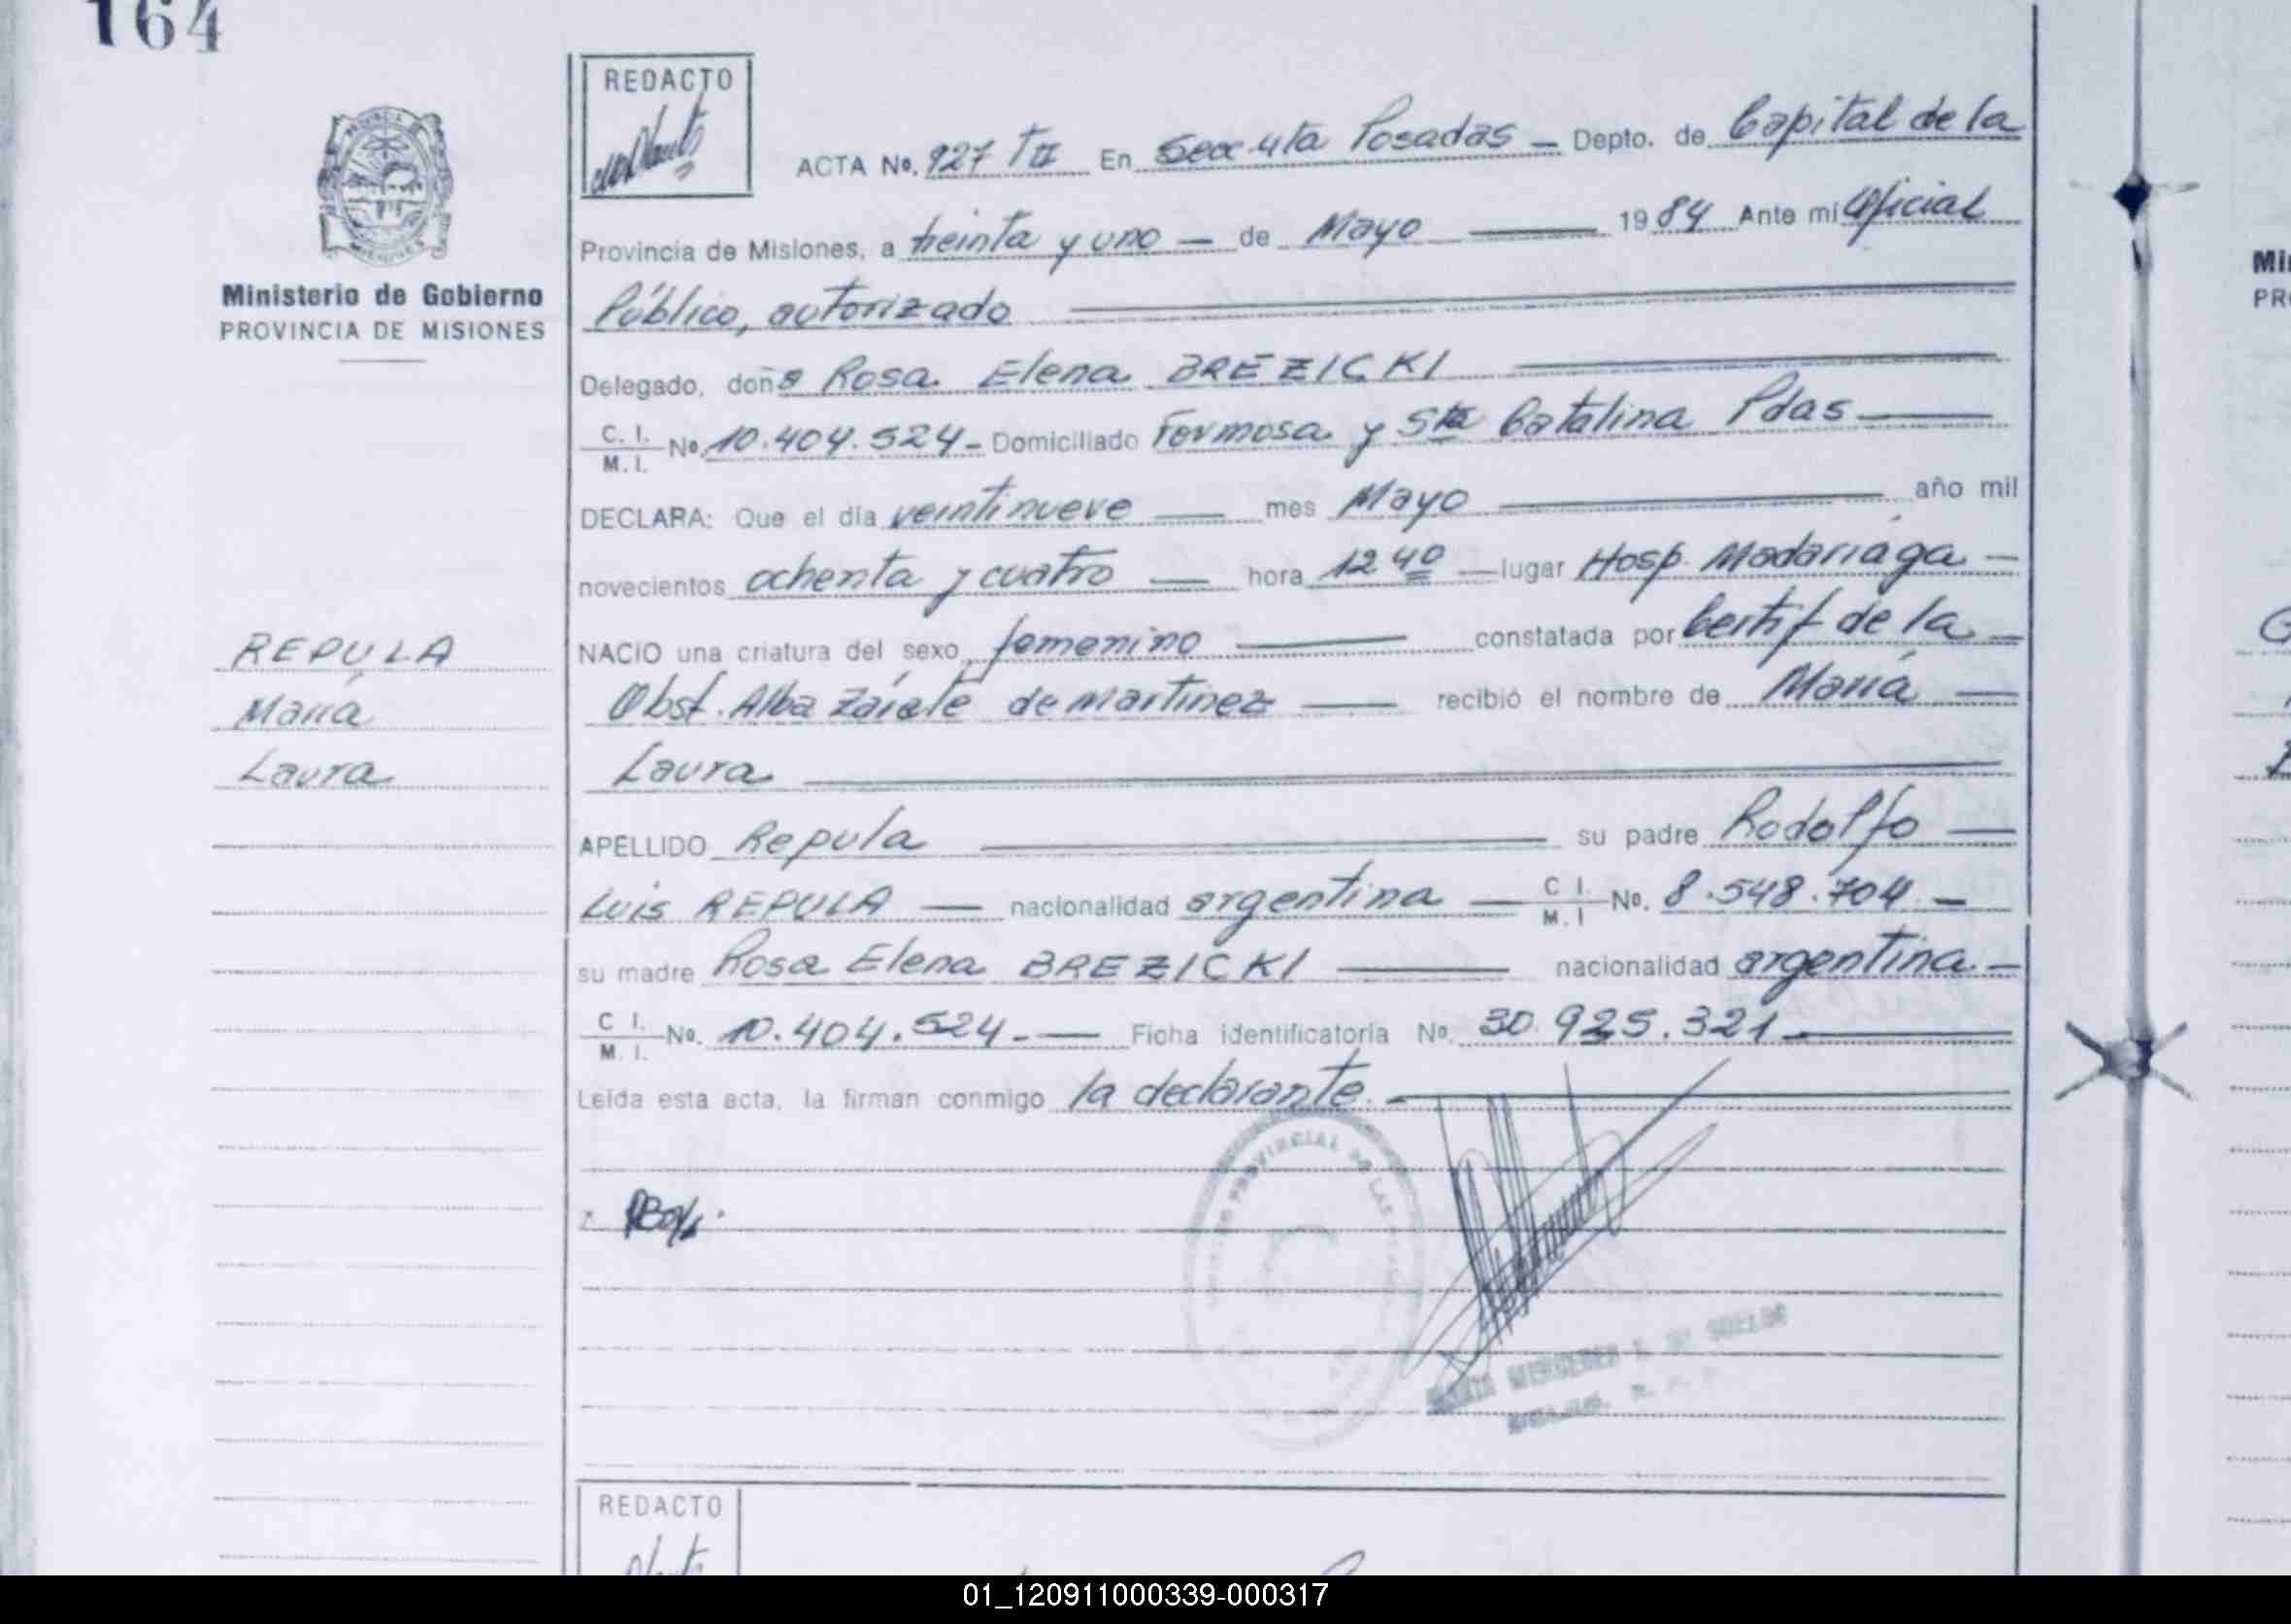 164
REDACTO
ACTA No. 927 T II En Secc. 4ta Posadas — Depto. de Capital de la
Provincia de Misiones, a treinta y uno — de Mayo — 1984 Ante mi Oficial
Ministerio de Gobierno
PROVINCIA DE MISIONES
Público, autorizado
Delegado, doña Rosa Elena BREZICKI
C. I. M. I. No 10.404.524- Domiciliado Formosa y Sta Catalina Pdas
DECLARA: Que el día veintinueve — mes Mayo — año mil
novecientos ochenta y cuatro — hora 12 40 — lugar Hosp. Madariaga —
NACIO una criatura del sexo femenino — constatada por Certif de la
Obst. Alba Zárate de Martínez — recibió el nombre de María —
Laura
REPULA
María
Laura
APELLIDO Repula — su padre Rodolfo —
Luis REPULA — nacionalidad argentina — C I. M. I No. 8.548.704 —
su madre Rosa Elena BREZICKI — nacionalidad argentina —
C I. M. I. No. 10.404.524.- — Ficha identificatoria No. 30.925.321
Leída esta acta, la firman conmigo la declarante.
PROVINCIAL DE LAS
MERCEDES
REDACTO
01_120911000339-000317